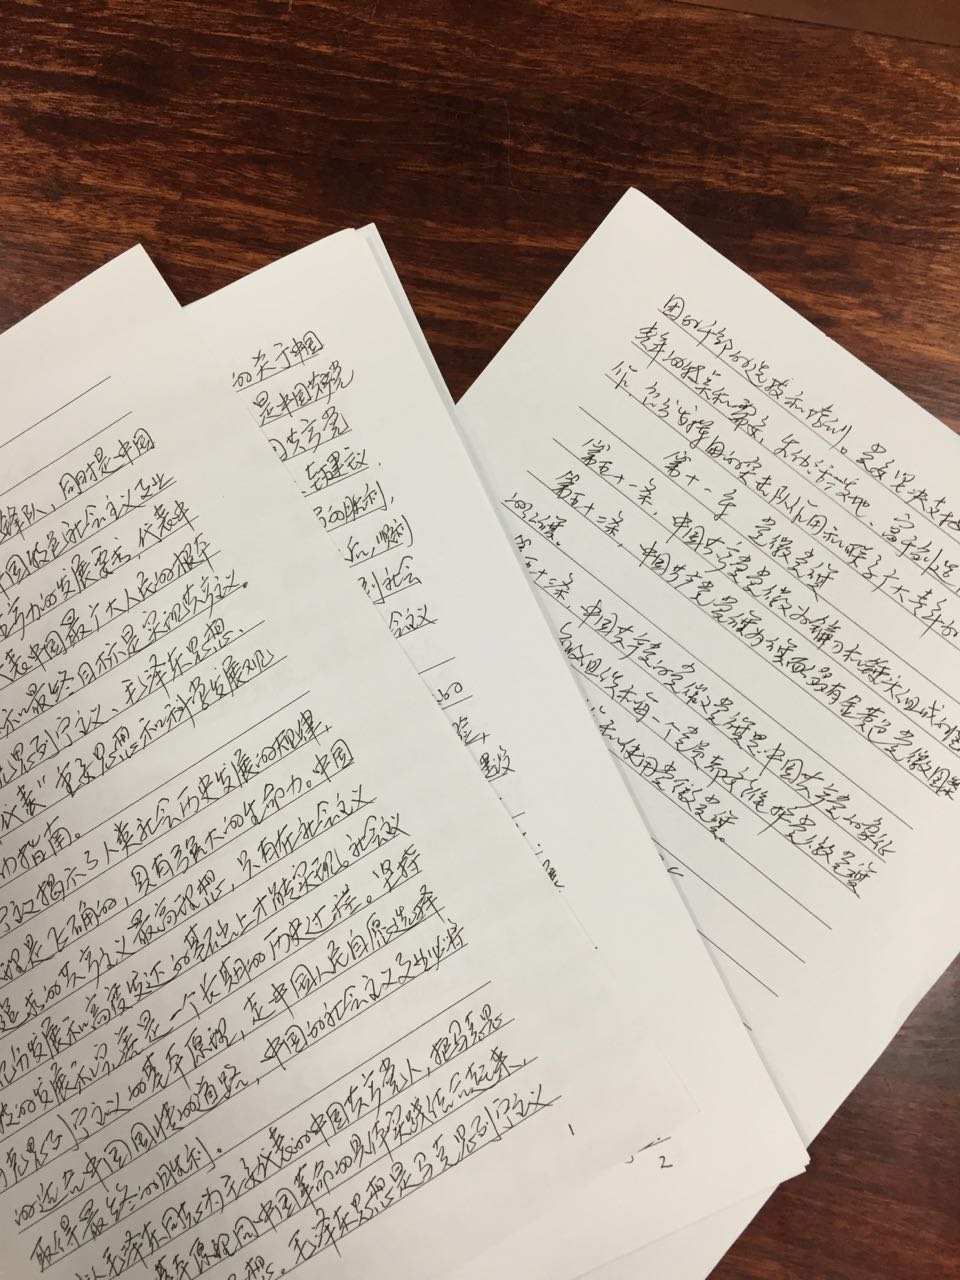 锋队，同时是中国
国特色社会主义事业
产力的发展要求，代表中
代表中国最广大人民的根本
和最终目标是实现共产主义。
克思列宁主义、毛泽东思想、
代表”重要思想和科学发展观
动指南。
宁主义揭示了人类社会历史发展的规律，
理是正确的，具有强大的生命力。中国
追求的共产主义最高理想，只有在社会主义
充分发展和高度发达的基础上才能实现。社会主义
的发展和完善是一个长期的历史过程。坚持
克思列宁主义的基本原理，走中国人民自愿选择
的适合中国国情的道路，中国的社会主义事业必将
取得最终的胜利。
以毛泽东同志为主要代表的中国共产党人，把马克思
基本原理同中国革命的具体实践结合起来，
毛泽东思想是马克思列宁主义
1
的关于中国
是中国共产党
国共产党
的胜利，
顺利
到社会
会主义
建设
2
团的干部的选拔和培训。党要坚决支持
青年的特点和需要，生动活泼地、富于创造
作，充分发挥团的突击队作用和联系广大青年的
第十一章 党徽党旗
第五十一条，中国共产党党徽为镰刀和锤头组成的图
第五十二条，中国共产党党旗为旗面缀有金黄色党徽图案
的红旗。
第五十三条，中国共产党的党徽党旗是中国共产党的象征
组织和每一个党员都要维护党徽党旗
和使用党徽党旗。